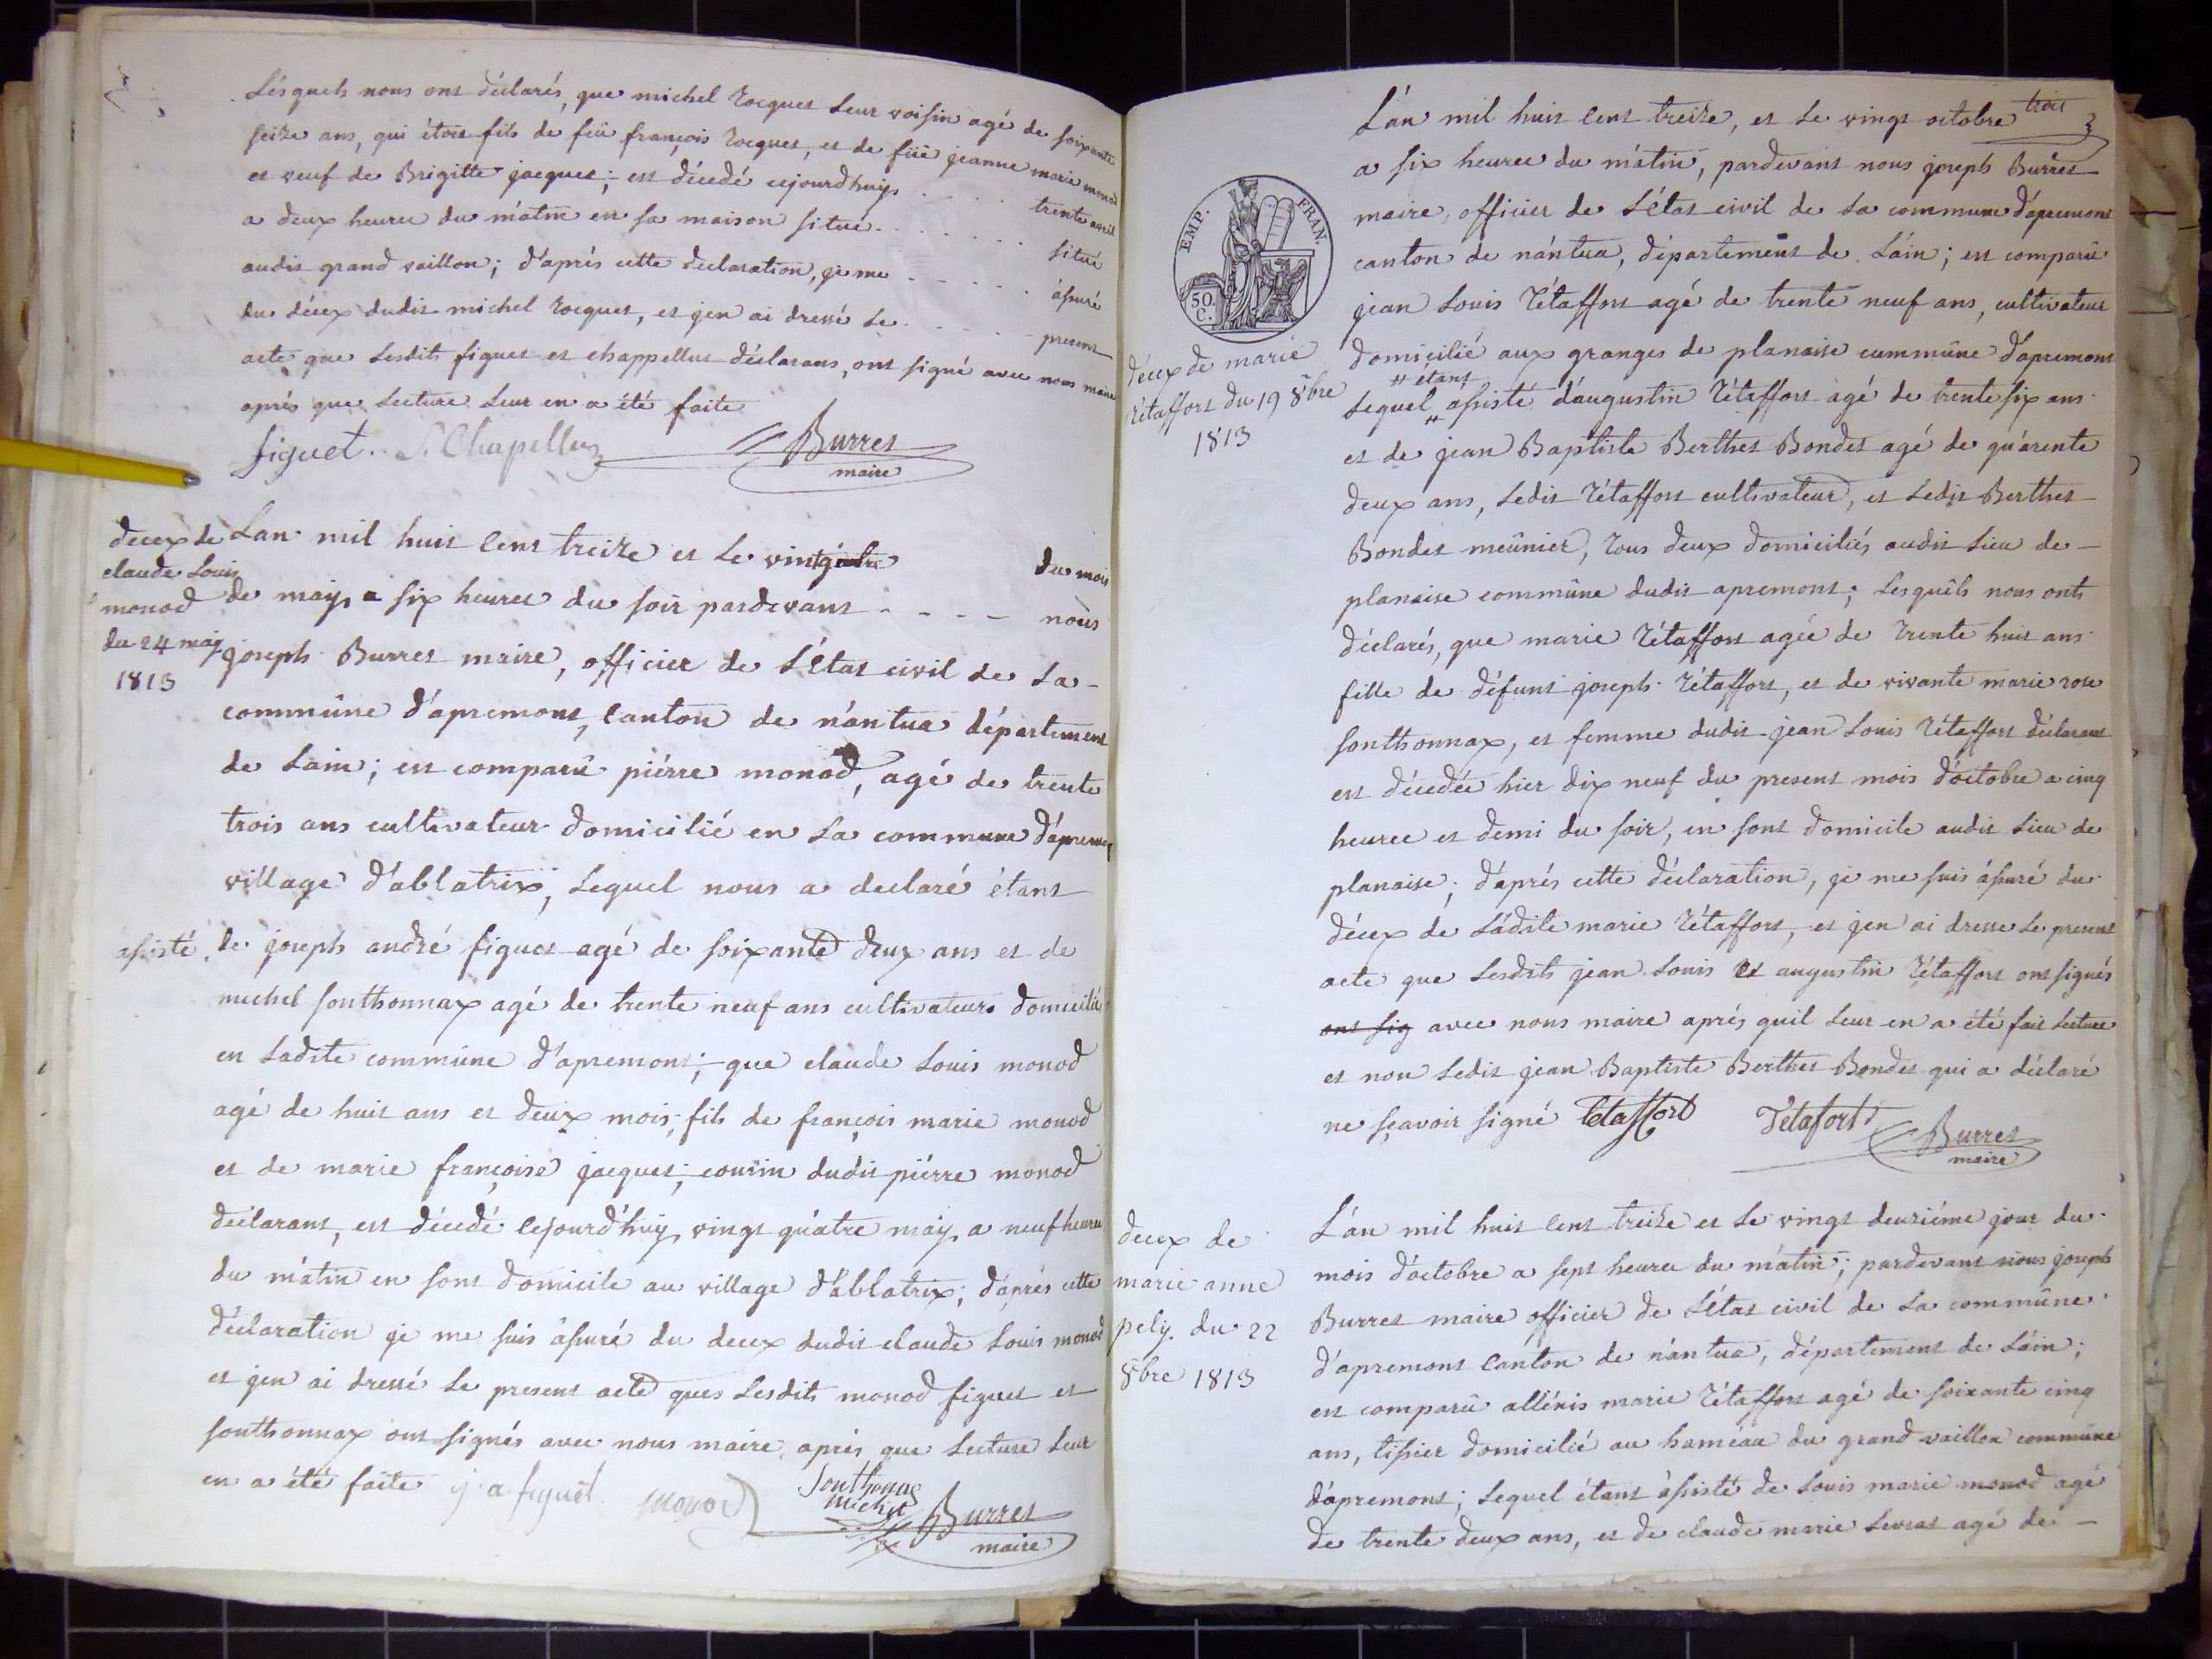 Lésquels nous ont déclarés, que michel tocquet leur voisin agé de soixante
seize ans, qui étoit fils de feü françois tocquet, et de füe jeanne marie monod
et veuf de Brigitte jacquet; est décedé cejourdhuij trente avril
a deux heures du mâtin en sa maison située situé
audit grand vaillon; d'aprés cette déclaration, je me
du décex dudit michel tocquet, et jen ai dressé le present
acte que lesdits figuet et chappellus déclarans, ont signé avec nous maire
aprés que lecture leur en a été faite
figuet. Chapellus Burret
maire
decex de claude louis monod du 24 maij 1813
Lan mil huit cent treize et le vingt du mois
de maij a six heures du soir pardevant nous
joseph Burret maire, officier de l'état civil de la
commüne d'apremont, canton de nántua département
de lain; est comparû piérre monod, agé de trente
trois ans cultivateur domicilié en la commune d'apremont
village d'ablatrix, lequel nous a declaré étant
assisté de joseph andré figuet agé de soixante deux ans et de
michel sonthonnax agé de trente neuf ans cultivateurs domiciliés
en ladite commüne d'apremont; que claude louis monod
agé de huit ans et deux mois, fils de françois marie monod
et de marie françoise jacquet; cousin dudit piérre monod
déclarant, est décedé cejourd'huij vingt quatre maij a neuf heures
du mâtin en sont domicile au village d'ablatrix; d'aprés cette
déclaration je me suis ássuré du decex dudit claude louis monod
et jen ai dressé le present acte ques lesdits monod figuet et
sonthonnax ont signés avec nous maire aprés que lecture leur
en a été faite j. a figuet monod Sonthonax
michel Burret
maire
trois 3
EMP. FRAN.
50 C.
décex de marie
tétaffort du 19 8bre
1813
L'án mil huit cent treize, et le vingt octobre
a six heures du mâtin, pardevant nous joseph Burret
maire, officier de l'état civil de la commune d'apremont
canton de nántua, département de láin; est comparû
jean louis tétaffort agé de trente neuf ans, cultivateur
domicilié aux granges de planaise cummüne d'apremont
# étant
lequel # assisté d'augustin tétaffort agé de trente six ans
et de jean Baptiste Berthet Bondet agé de quárente
deux ans, ledit tétaffort cultivateur, et ledit Berthet
Bondet meünier, tous deux domiciliés audit lieu de
planaise commüne dudit apremont; lesquéls nous onts
déclarés, que marie tétaffort agée de trente huit ans
fille de défunt joseph tétaffort, et de vivante marie rose
sonthonnax, et femme dudit jean louis tétaffort déclarant
est décedée hier dix neuf du present mois d'octobre a cinq
heures et demi du soir, en sont domicile audit lieu de
planaise; d'aprés cette déclaration, je me suis ássuré du
décex de ládite marie tétaffort, et jen ai dresse le present
acte que lesdits jean louis et augustin tétaffort ont signés
ont sig avec nous maire aprés quil leur en a été fait lecture
et non ledit jean Baptiste Berthet Bondet qui a déclaré
ne sçavoir signé tétaffort Tetafort Burret
maire
decex de
marie anne
pelÿ. du 22
8bre 1813
L'án mil huit cent treize et le vingt deuxiéme jour du
mois d'octobre a sept heures du mâtin; pardevant nous joseph
Burret maire officier de l'état civil de la commüne
d'apremont canton de nántua, département de láin;
est comparû allénis marie tétaffort agé de soixante cinq
ans, tissier domicilié au haméau du grand vaillon commüne
d'apremont; lequel étant ássisté de louis marie monod agé
de trente deux ans, et de claude marie levrat agé de